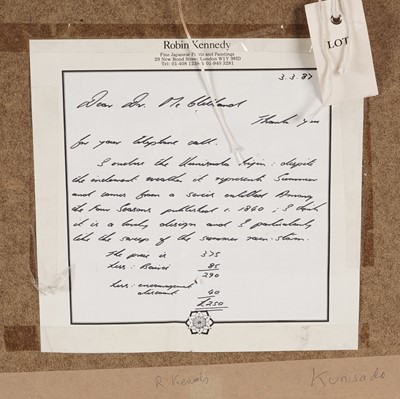 Robin Kennedy
Fine Japanese Prints and Paintings
29 New Bond Street London W1Y 9HD
Tel: 01-408 1238 01-940 5281
LOT
3.3.87
Dear Dr. McClelland
Thank you
for your telephone call.
I enclose the Kunisada : despite
the inclement weather it represents Summer
and comes from a series entitled Among
the Four Seasons published c. 1860 ; I think
it is a lovely design and I particularly
like the sweep of the summer rain-storm.
The price is 375
Less: 85
290
Less: encouragement
discount 40
£250
R. Kennedy
Kunisada